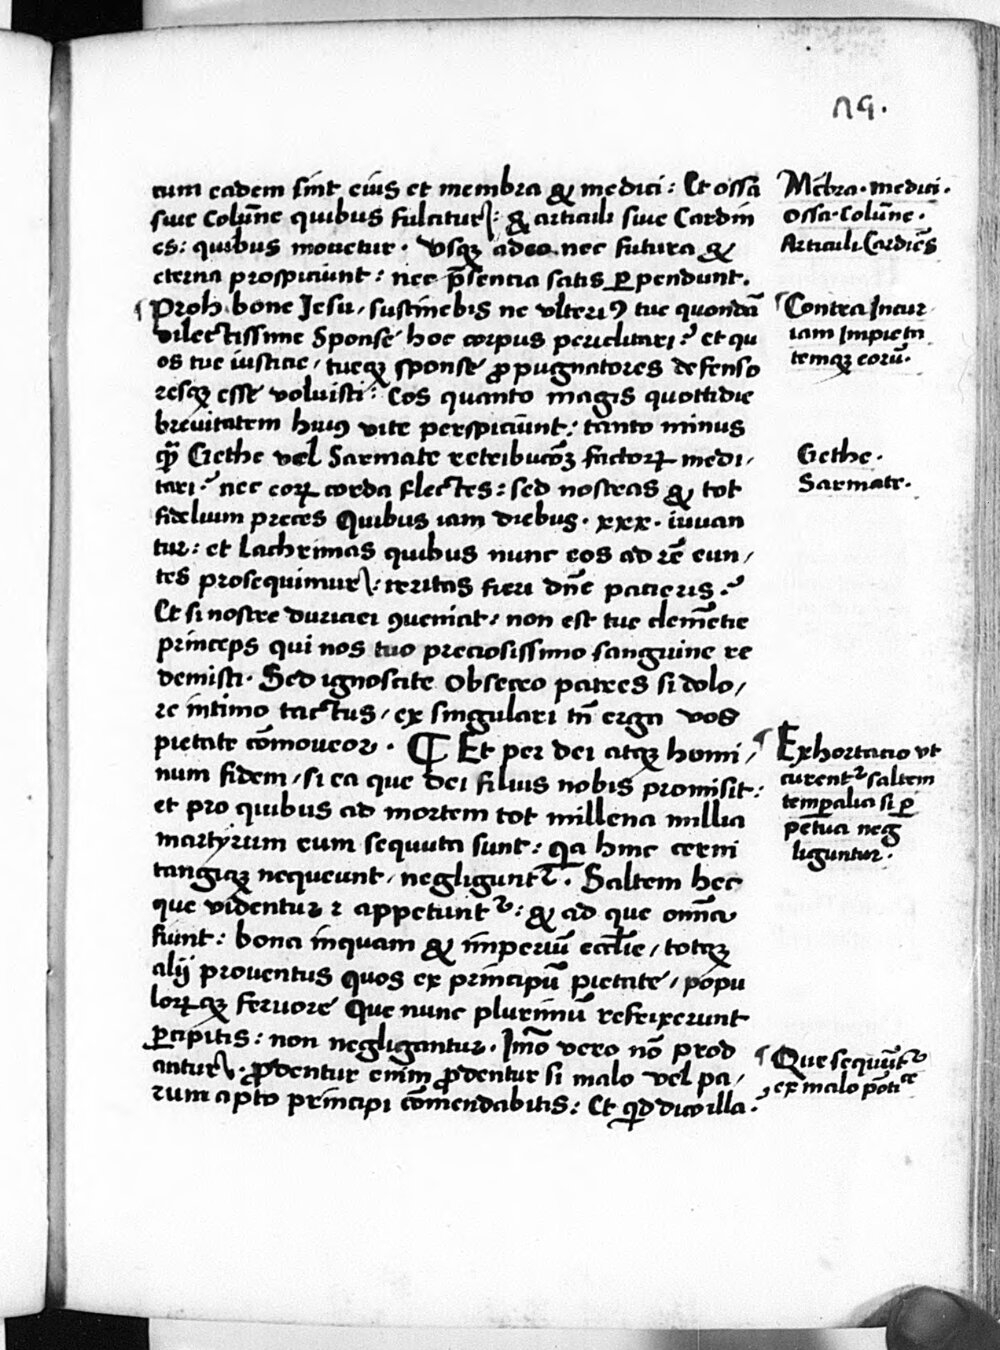 ꓵ9.
tum eadem sint eius et membra & medici: Et ossa
siue Colūne quibus fulcitur: & articuli siue Cardin
es: quibus mouetur. Vsqꝫ adeo nec futura &
eterna prospiciunt: nec p̄sencia satis ꝑpendunt.
Proh bone Jesu, sustinebis ne vlteriꝰ tue quondā
dilectissime Sponse hoc corpus periclitari? et qu
os tue iusticie, tueqꝫ sponse ꝓpugnatores defenso
resqꝫ esse voluisti: Eos quanto magis quottidie
breuitatem huiꝰ vite perspiciunt: tanto minus
qꝫ̄ Gethe vel Sarmate retribucōꝫ factoꝝ medi,
tari? nec eoꝝ corda flectes: sed nostras & tot
fidelium preces Quibus iam diebus. xxx. iuuan
tur: et Lachrimas quibus nunc eos ad rē eun,
tes prosequimur: irritas fieri dn̄e pacieris.?
Et si nostre duriciei ꝯueniat: non est tue clemētie
princeps qui nos tuo preciosissimo sanguine re
demisti. Sed ignoscite Obsecro patres si dolo,
re intimo tactus, ex singulari tn̄ erga vos
pietate cōmoueor. ¶ Et per dei atqꝫ homi,
num fidem, si ea que dei filius nobis promisit:
et pro quibus ad mortem tot millena millia
martyrum eum sequuta sunt: qa hinc cerni
tangiqꝫ nequeunt, negligunt᷑. Saltem hec
que videntur ꝛ appetunt᷑: & ad que om̄a
fiunt: bona inquam & imperiū eccl̄ie, totqꝫ
alij prouentus quos ex principū pietate, popu
loꝝqꝫ feruore Que nunc plurimū refrixerunt
ꝑcipitis: non negligantur. Imo vero nō prod
antur. ꝓdentur enim ꝓdentur si malo vel pa,
rum apto principi cōmendabitis: Et qđ dico illa.
Mēbra. medici.
Ossa. Colūne.
Articuli. Cardiēs
Contra Incur
iam Impieta
temqꝫ eorū.
Gethe.
Sarmate.
Exhortacio vt
curent᷑ saltem
temꝑalia si ꝑ
petua neg
liguntur.
Que sequūt᷑
ex malo pōtice